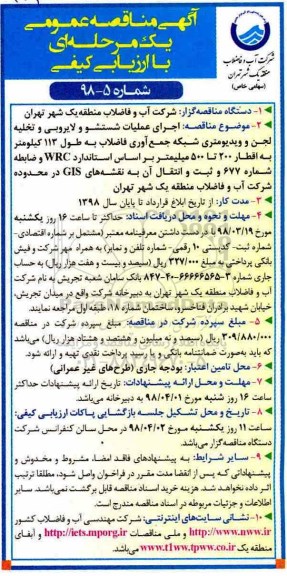 آگهی مناقصه عمومی
یک مرحله‌ای
با ارزیابی کیفی
شرکت آب و فاضلاب
منطقه یک شهر تهران
(سهامی خاص)
شماره ۵-۹۸
۱- دستگاه مناقصه‌گزار: شرکت آب و فاضلاب منطقه یک شهر تهران
۲- موضوع مناقصه: اجرای عملیات شستشو و لایروبی و تخلیه
لجن و ویدیومتری شبکه جمع‌آوری فاضلاب به طول ۱۱۳ کیلومتر
به اقطار ۲۰۰ تا ۵۰۰ میلیمتر بر اساس استاندارد WRC و ضابطه
شماره ۶۷۷ و ثبت و انتقال آن به نقشه‌های GIS در محدوده
شرکت آب و فاضلاب منطقه یک شهر تهران
۳- مدت کار: از تاریخ ابلاغ قرارداد تا پایان سال ۱۳۹۸
۴- مهلت و نحوه و محل دریافت اسناد: حداکثر تا ساعت ۱۶ روز یکشنبه
مورخ ۹۸/۰۳/۱۹ با در دست داشتن معرفی‌نامه معتبر (مشتمل بر شماره اقتصادی-
شماره ثبت- کد پستی ۱۰ رقمی- شماره تلفن و نمابر) به همراه مهر شرکت و فیش
بانکی پرداختی به مبلغ ۳۳۷/۰۰۰ ریال (سیصد و بیست و هفت هزار ریال) به حساب
جاری شماره ۳-۶۶۶۶۶۵۶۳-۴۰-۸۴۷ بانک سامان شعبه تجریش به نام شرکت
آب و فاضلاب منطقه یک شهر تهران به دبیرخانه شرکت واقع در میدان تجریش،
خیابان شهید برادران فناخسرو، ساختمان شماره ۱۸، طبقه اول مراجعه نمایند.
۵- مبلغ سپرده شرکت در مناقصه: مبلغ سپرده شرکت در مناقصه
۳۰۹/۸۸۰/۰۰۰ ریال (سیصد و نه میلیون و هشتصد و هشتاد هزار ریال) می‌باشد
که باید به‌صورت ضمانتنامه بانکی و یا رسید پرداخت نقدی تهیه و ارائه شود.
۶- محل تامین اعتبار: بودجه جاری (طرح‌های غیر عمرانی)
۷- مهلت و محل ارائه پیشنهادات: تاریخ ارائه پیشنهادات حداکثر
ساعت ۱۶ روز شنبه مورخ ۹۸/۰۴/۰۱ به دبیرخانه می‌باشد.
۸- تاریخ و محل تشکیل جلسه بازگشایی پاکات ارزیابی کیفی:
ساعت ۱۱ روز یکشنبه مورخ ۹۸/۰۴/۰۲ در محل سالن کنفرانس شرکت
دستگاه مناقصه‌گزار می‌باشد.
۹- سایر شرایط: به پیشنهادهای فاقد امضا، مشروط و مخدوش و
پیشنهاداتی که پس از انقضا مدت مقرر در فراخوان واصل شود، مطلقا ترتیب
اثر داده نخواهد شد. هزینه خرید اسناد مناقصه قابل برگشت نمی‌باشد. سایر
اطلاعات و جزئیات مربوطه در اسناد مناقصه مندرج است.
۱۰- نشانی سایت‌های اینترنتی: شرکت مهندسی آب و فاضلاب کشور
http://www.nww.ir و ملی مناقصات http://iets.mporg.ir و آبفای
منطقه یک www.t1ww.tpww.co.ir می‌باشد.